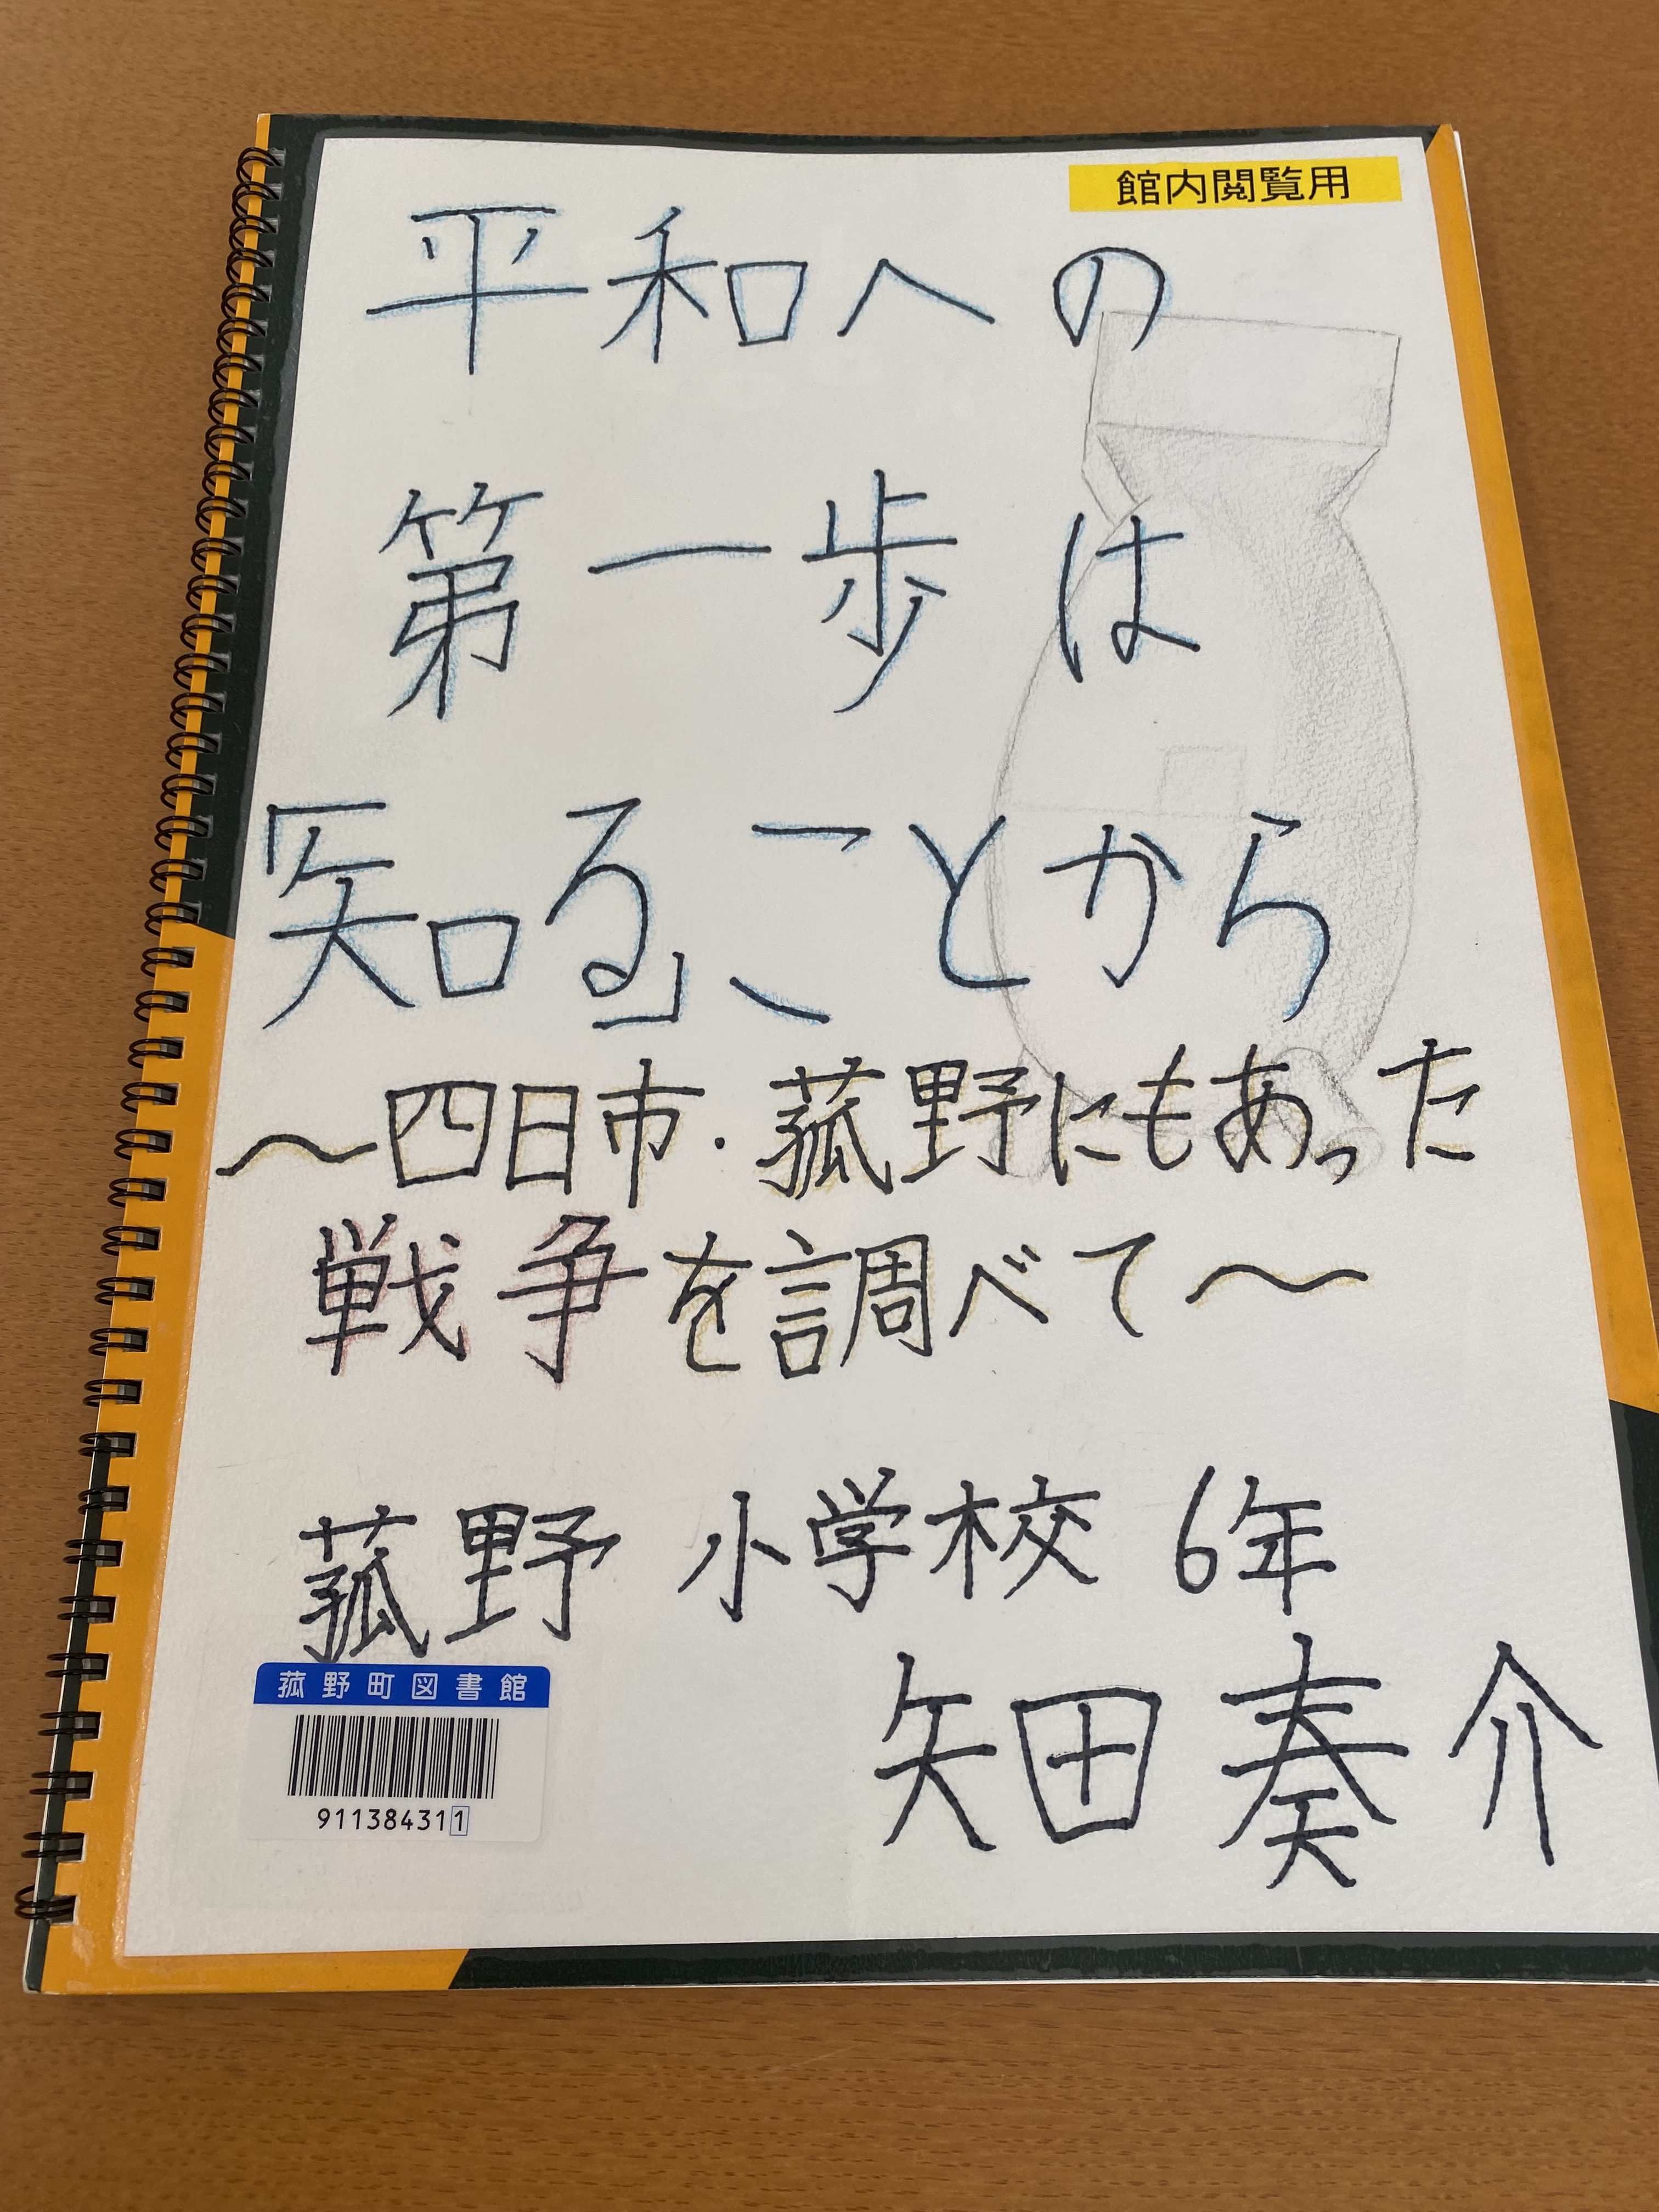 館内閲覧用
平和への
第一歩は
「知る」ことから
〜四日市・菰野にもあった
戦争を調べて〜
菰野小学校 6年
矢田奏介
菰野町図書館
911384311